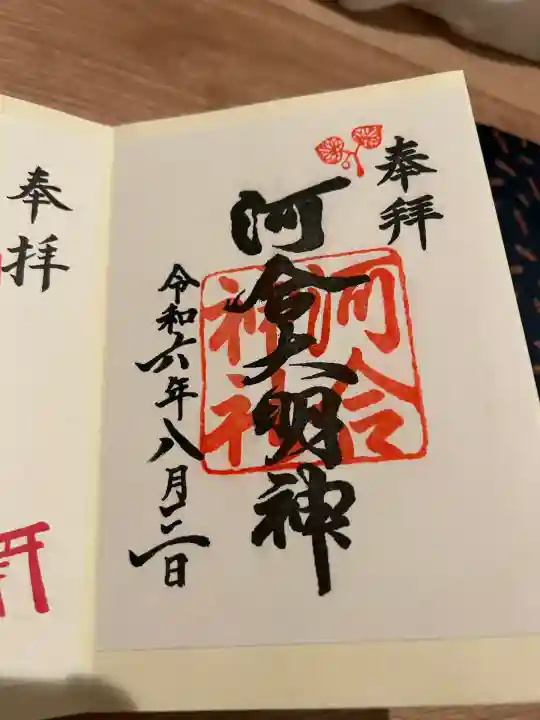 奉拝
河合大明神
河合
神社
令和六年八月二日
奉拝